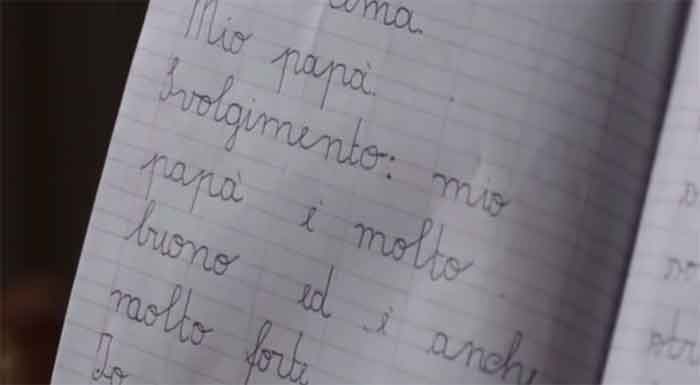 Tema.
Mio papà.
Svolgimento: mio
papà è molto
buono ed è anche
molto forte
Io